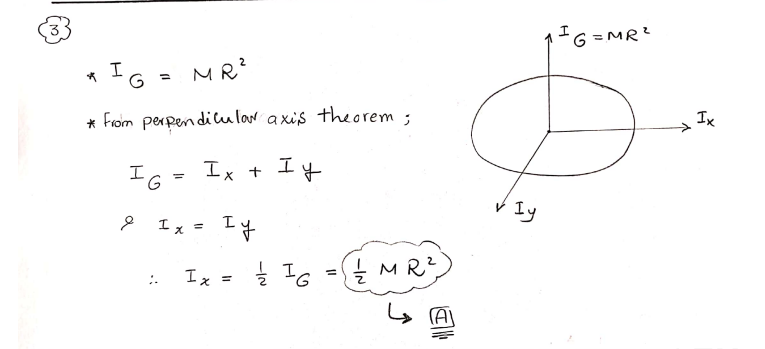 3
I G = MR²
* I G = MR²
* from perpendicular axis theorem ;
Ix
I G = I x + I y
& I x = I y
Iy
∴ I x = 1/2 I G = 1/2 M R²
↳ A